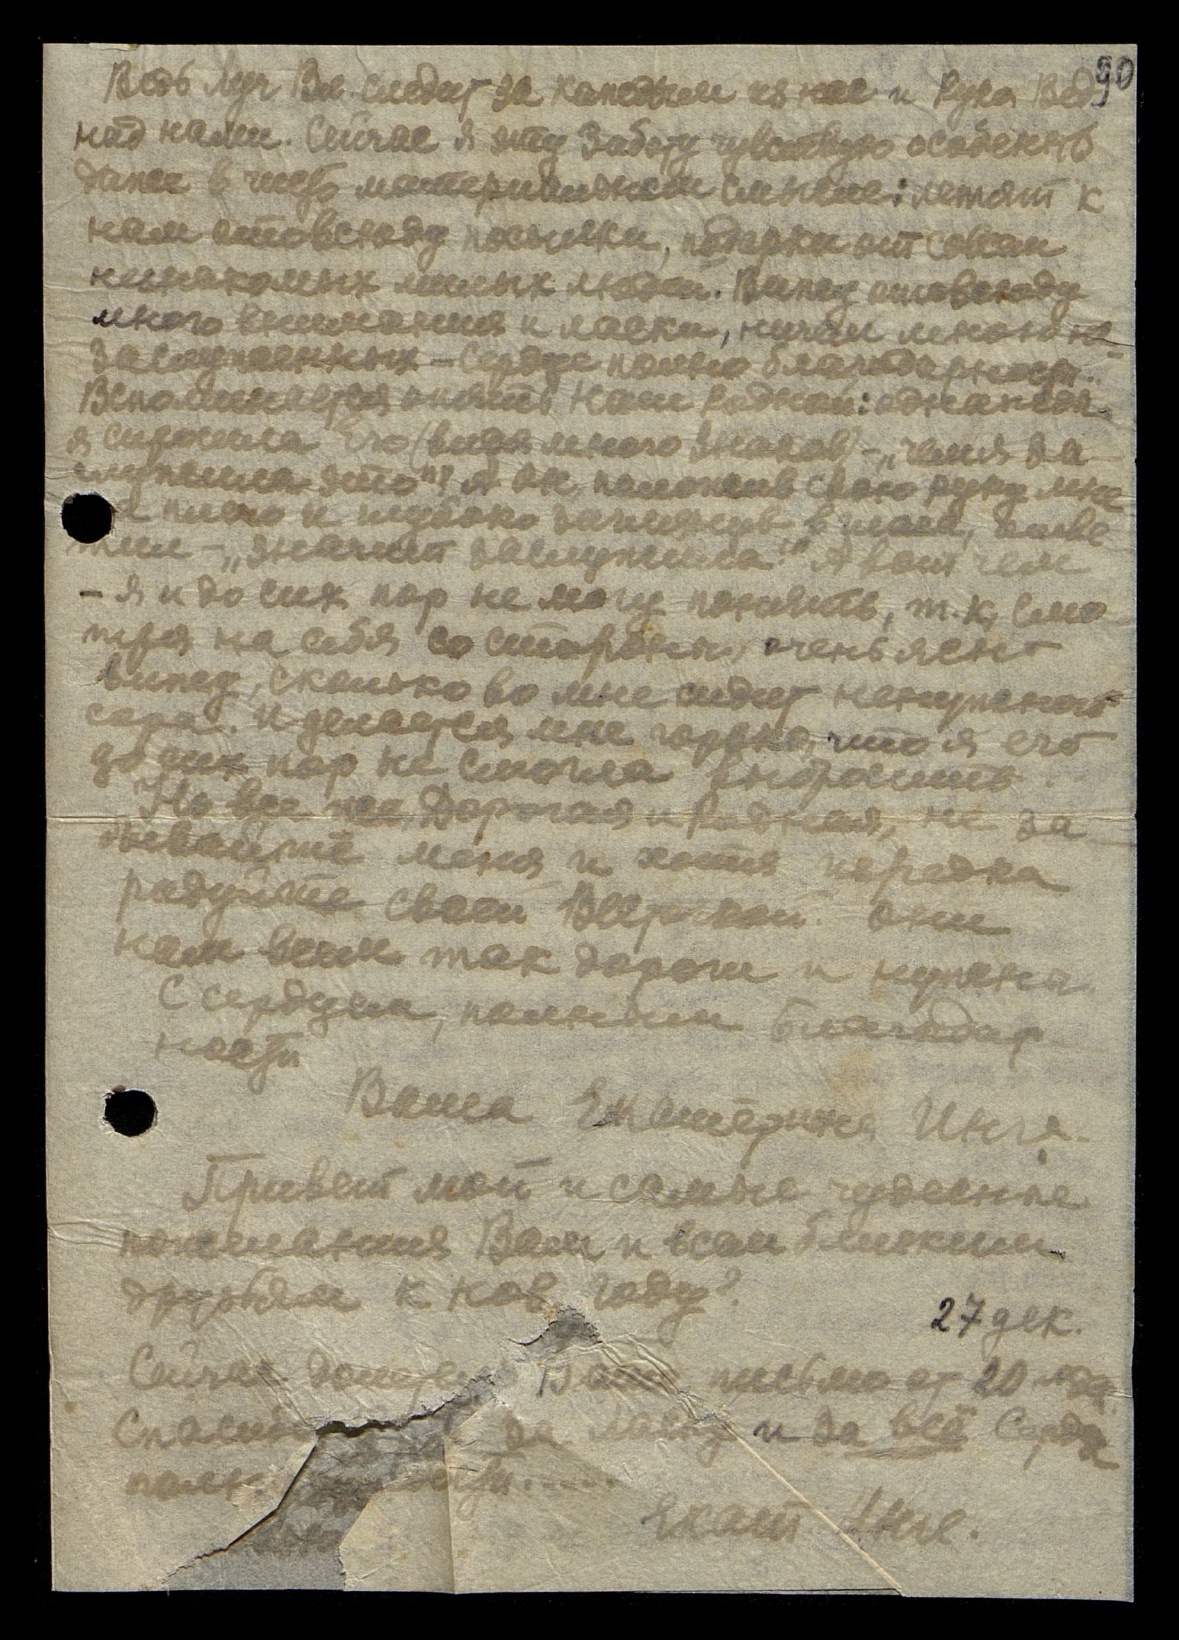 90
Ведь Луч Вл. следит за каждым из нас и Рука Вед.
над нами. Сейчас я эту Заботу чувствую особенно
даже в чисто материальном смысле: летят к
нам отовсюду посылки, подарки от совсем
незнакомых милых людей. Вижу отовсюду
много внимания и ласки, ничем мною не-
заслуженных – сердце полно благодарности.
Вспоминается опять Наш Родной: однажды
я спросила Его (видя много знаков) – „чем я за-
служила это"? А он, положив свою руку мне
на плечо и глубоко заглянув в глаза,
– „значит заслужила". А вот чем
– я и до сих пор не могу понять, т.к. смо-
тря на себя со стороны, очень ясно
вижу, сколько во мне сидит ненужного
сора. И делается мне горько, что я его
до сих пор не смогла выбросить.
Но все же, Дорогая и Родная, не за-
бывайте меня и хотя изредка
радуйте своей Весточкой. Они
нам всем так дороги и нужны.
С сердцем, полным благодар-
ности
Ваша Екатерина Инге.
Привет мой и самые чудесные
пожелания Вам и всем близким
друзьям к нов. году!
27 дек.
Сейчас Ваше письмо от 20 дек.
за ласку и за всё Сердце

Екат Инге.